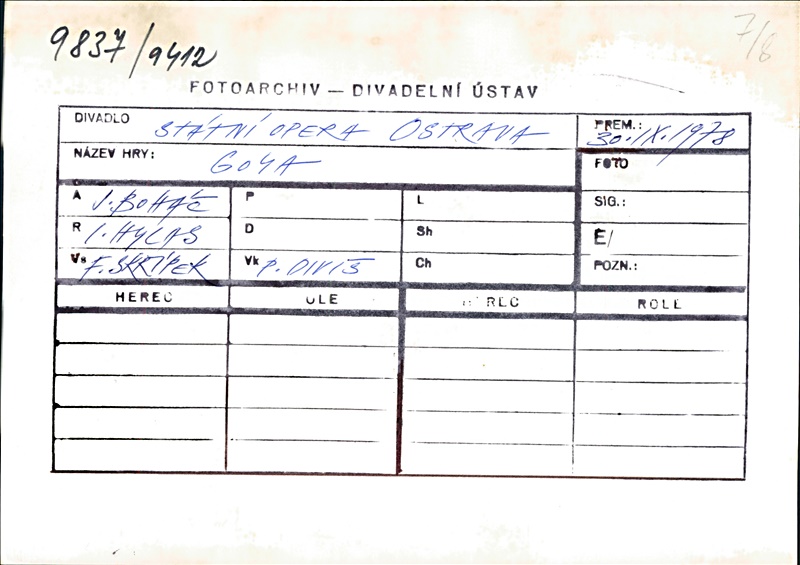 9837/9412
7/8
FOTOARCHIV — DIVADELNÍ ÚSTAV
DIVADLO STÁTNÍ OPERA OSTRAVA
PREM.: 30./IX./1978
NÁZEV HRY: GOYA
FOTO
A J. BOHÁČ P L SIG.:
R I. HYLAS D Sh Č/
Vs F. SKŘÍPEK Vk P. DIVIŠ Ch POZN.:
HEREC OLE REC ROLE